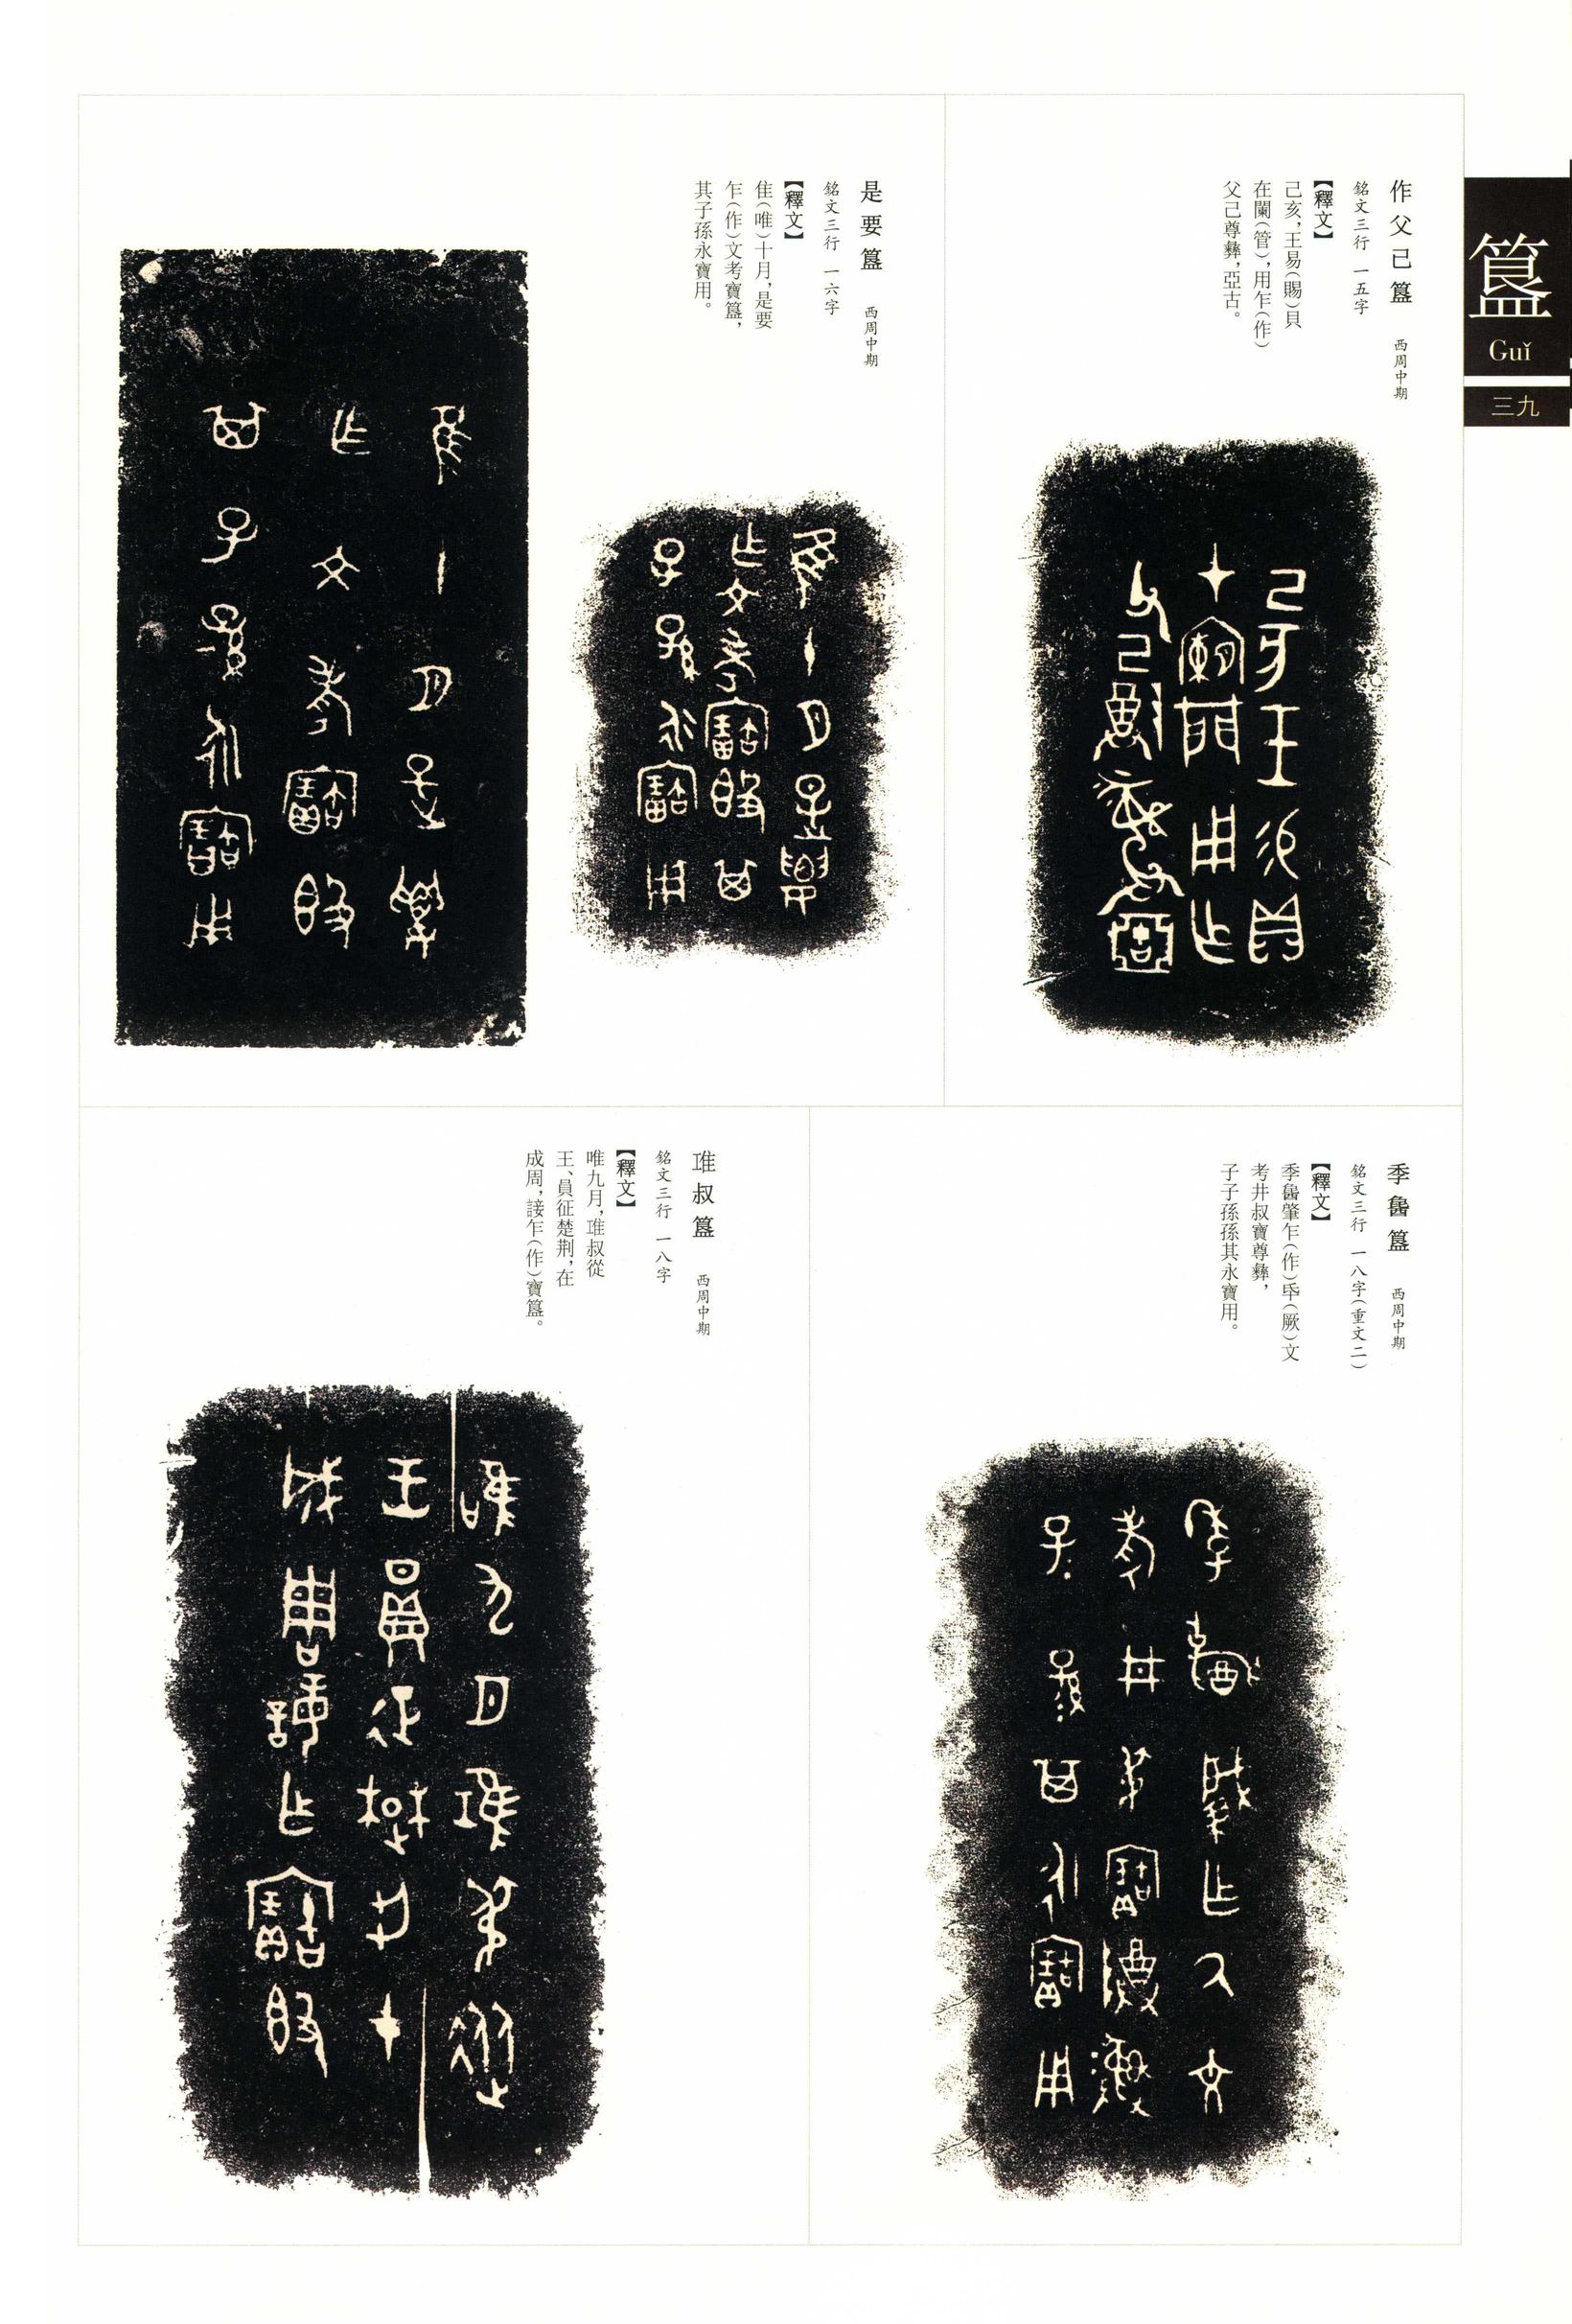 簋
Guǐ
三九
作父己簋 西周中期
銘文三行 一五字
【釋文】
己亥，王易（賜）貝
在闌（管），用乍（作）
父己尊彝，亞古。
是要簋 西周中期
銘文三行 一六字
【釋文】
隹（唯）十月，是要
乍（作）文考寶簋，
其子孫永寶用。
季簋 西周中期
銘文三行 一八字（重文二）
【釋文】
季肇乍（作）氒（厥）文
考井叔寶尊彝，
子子孫孫其永寶用。
叔簋 西周中期
銘文三行 一八字
【釋文】
唯九月，叔從
王、員征楚荆，在
成周，乍（作）寶簋。